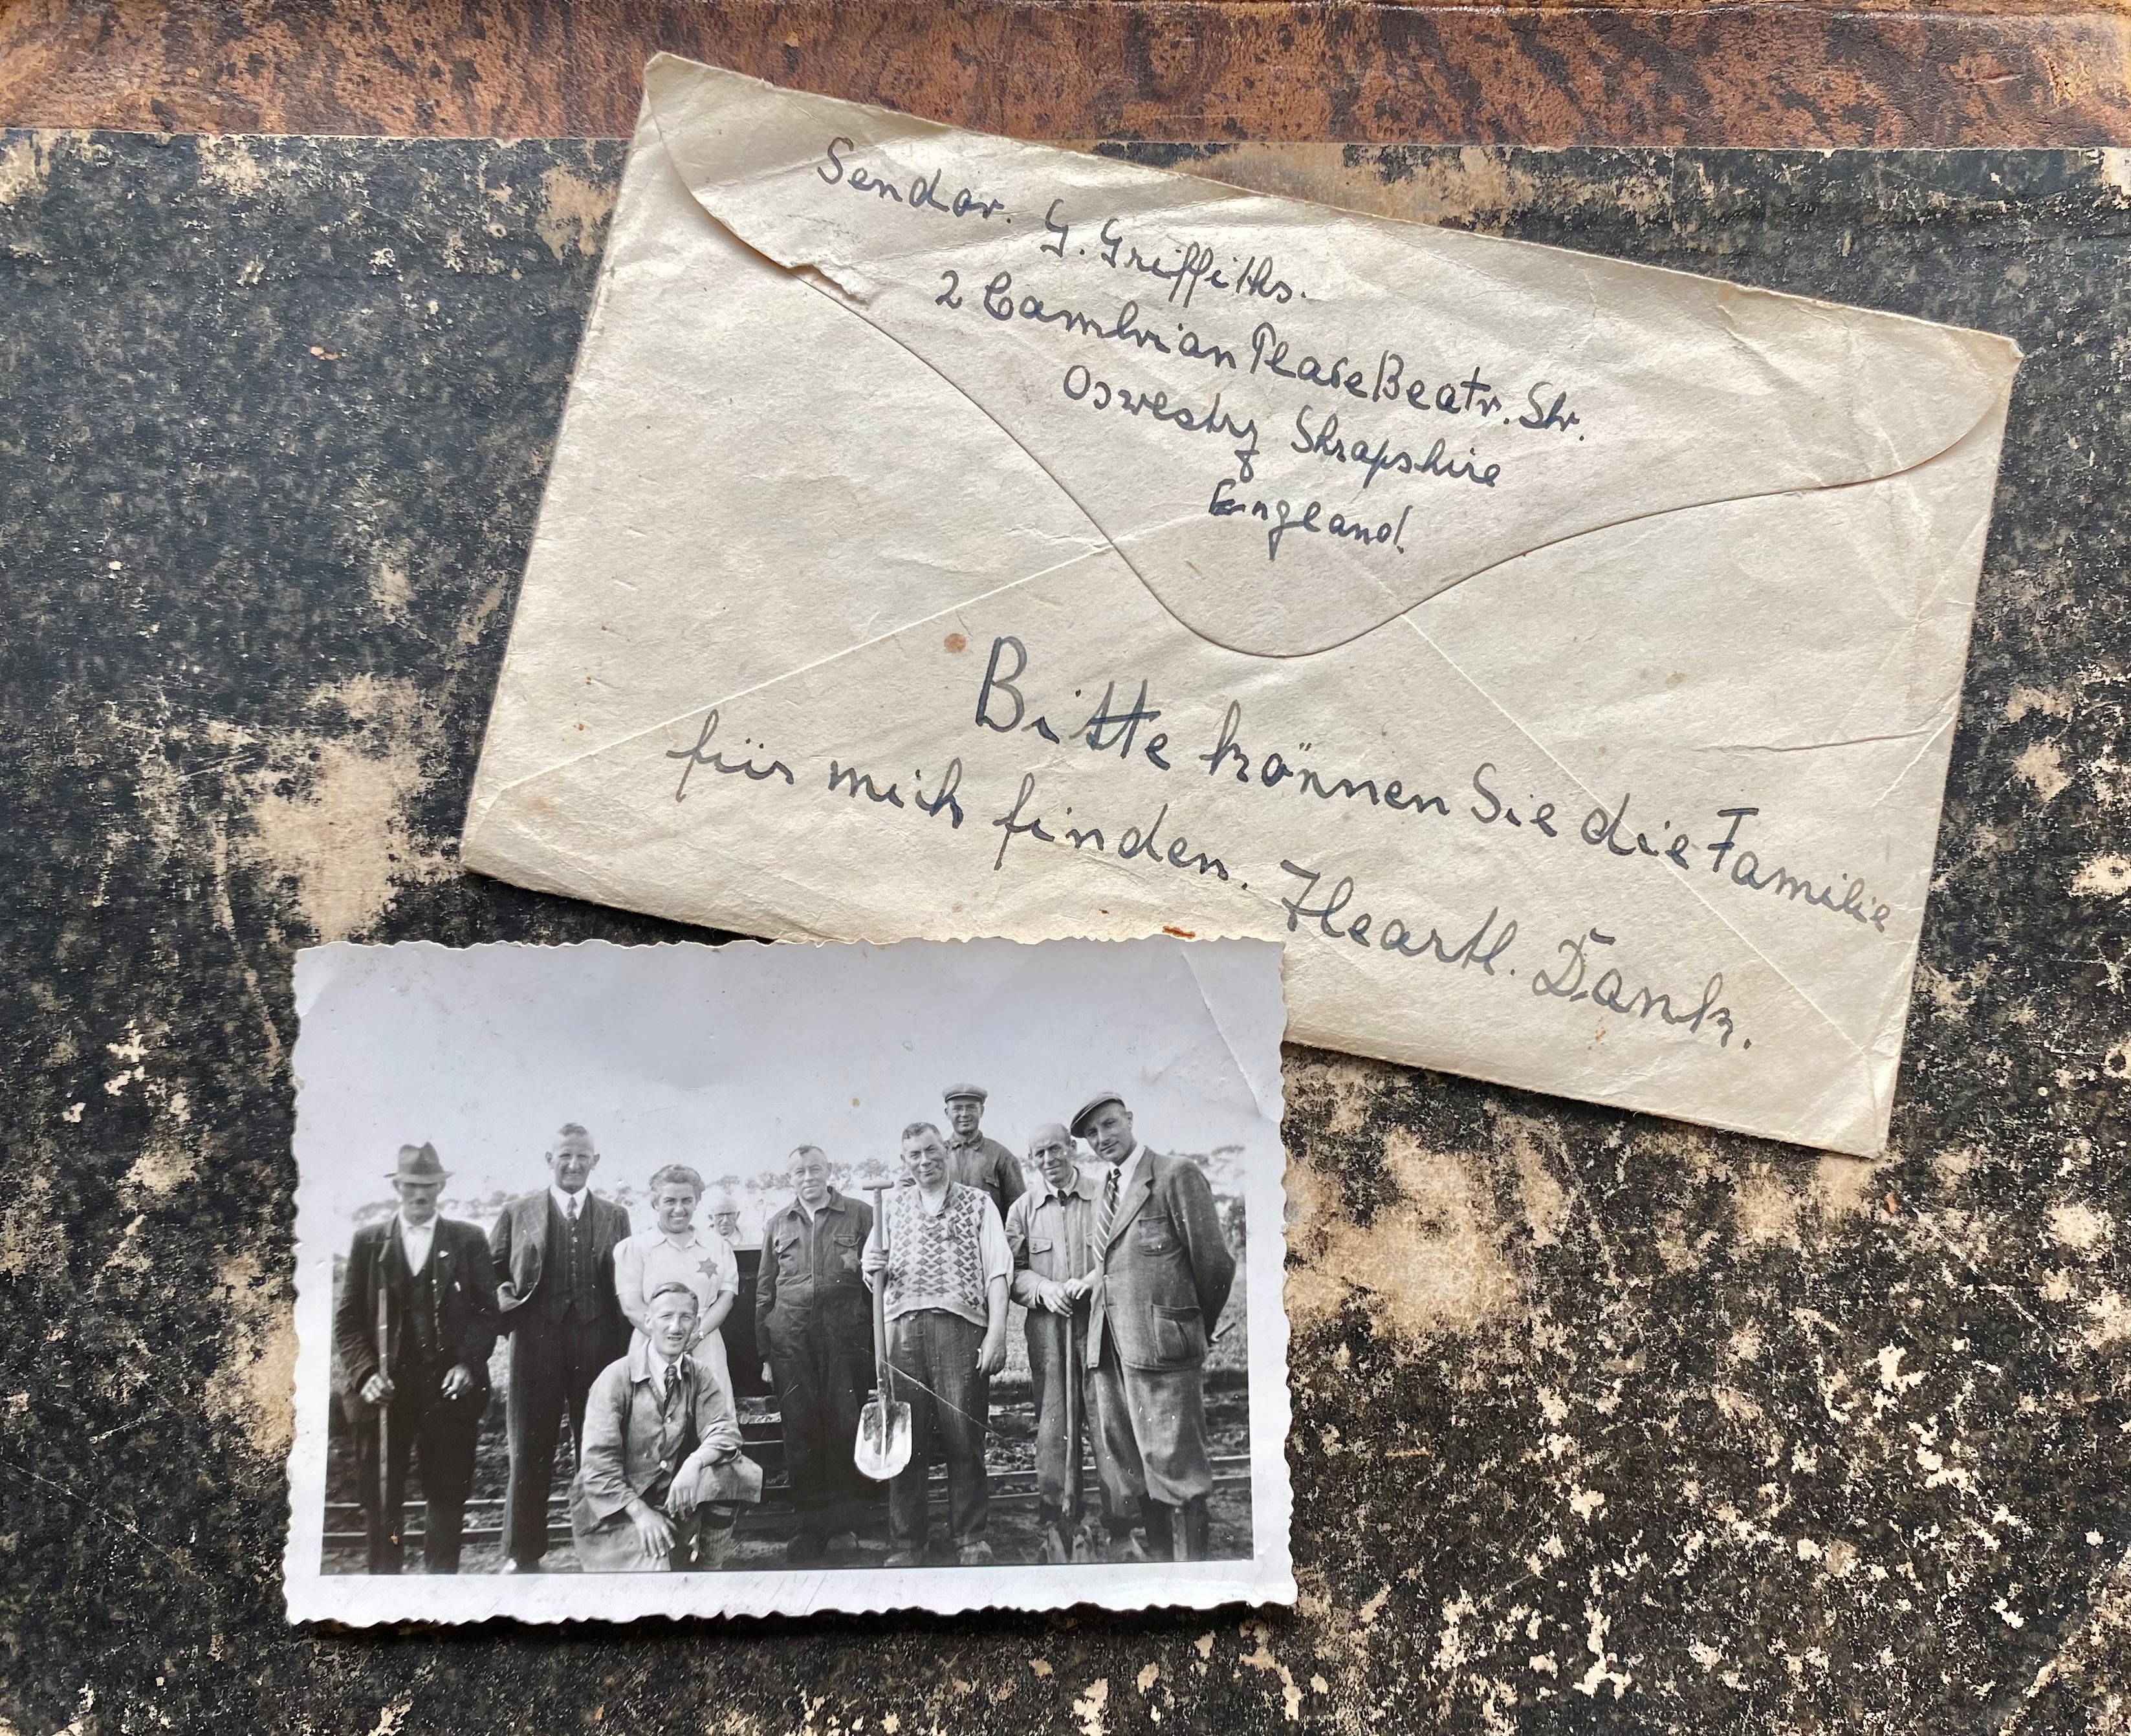 Sendor. G. Griffiths.
2 Cambrian Place Beatr. Str.
Oswestry Shropshire
England.
Bitte können Sie die Familie
für mich finden. Heartl. Dank.